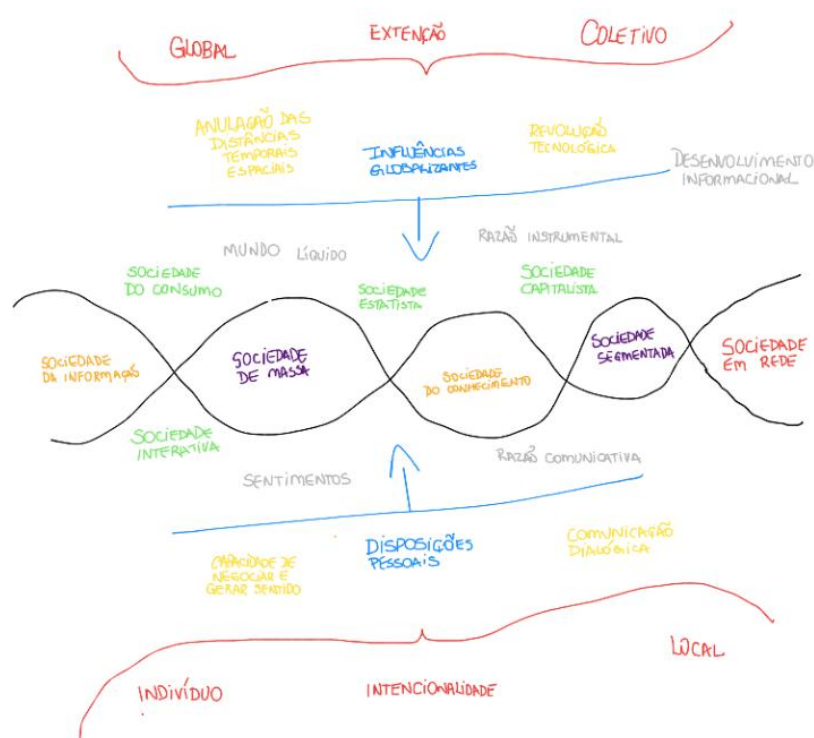 GLOBAL
EXTENÇÃO
COLETIVO
ANULAÇÃO DAS
DISTÂNCIAS
TEMPORAIS
ESPACIAIS
INFLUÊNCIAS
GLOBALIZANTES
REVOLUÇÃO
TECNOLÓGICA
DESENVOLVIMENTO
INFORMACIONAL
MUNDO LÍQUIDO
RAZÃO INSTRUMENTAL
SOCIEDADE
DO CONSUMO
SOCIEDADE
ESTATISTA
SOCIEDADE
CAPITALISTA
SOCIEDADE
DA INFORMAÇÃO
SOCIEDADE
DE MASSA
SOCIEDADE
DO CONHECIMENTO
SOCIEDADE
SEGMENTADA
SOCIEDADE
EM REDE
SOCIEDADE
INTERATIVA
SENTIMENTOS
RAZÃO COMUNICATIVA
CAPACIDADE DE
NEGOCIAR E
GERAR SENTIDO
DISPOSIÇÕES
PESSOAIS
COMUNICAÇÃO
DIALÓGICA
INDIVÍDUO
INTENCIONALIDADE
LOCAL